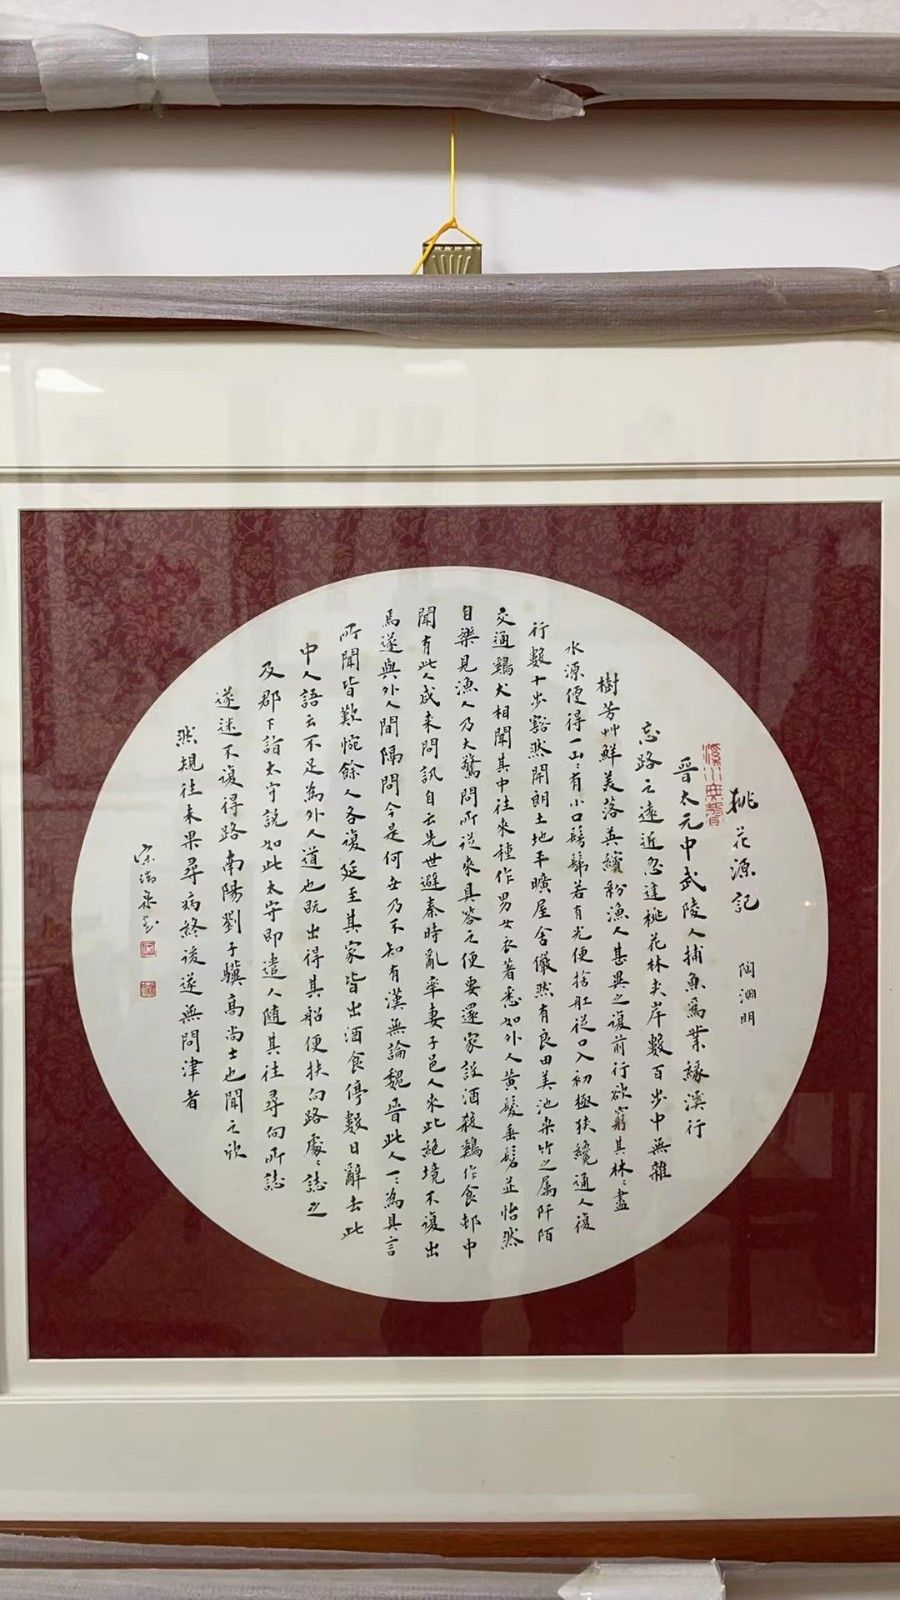 桃花源記 陶淵明
晉太元中武陵人捕魚為業緣溪行
忘路之遠近忽逢桃花林夹岸數百步中無雜
樹芳艸鮮美落英繽粉漁人甚異之復前行欲窮其林〻盡
水源便得一山〻有小口髣髴若有光便捨舡從口入初極狹纔通人復
行數十步豁然開朗土地平曠屋舍儼然有良田美池桑竹之属阡陌
交通鷄犬相聞其中往来種作男女衣著悉如外人黄髮垂髫並怡然
自樂見漁人乃大驚問所從來具答之便要還家設酒殺鷄作食邨中
聞有此人咸来問訊自云先世避秦時亂率妻子邑人來此絕境不復出
焉遂與外人間隔問今是何世乃不知有漢無論魏晉此人一〻為具言
所聞皆歎惋餘人各復延至其家皆出酒食停數日辭去此
中人語云不足為外人道也既出得其船便扶向路處〻誌之
及郡下詣太守説如此太守即遣人隨其往尋向所誌
遂迷不復得路南陽劉子驥高尚士也聞之欣
然規往未果尋病終後遂無問津者
宋瑞